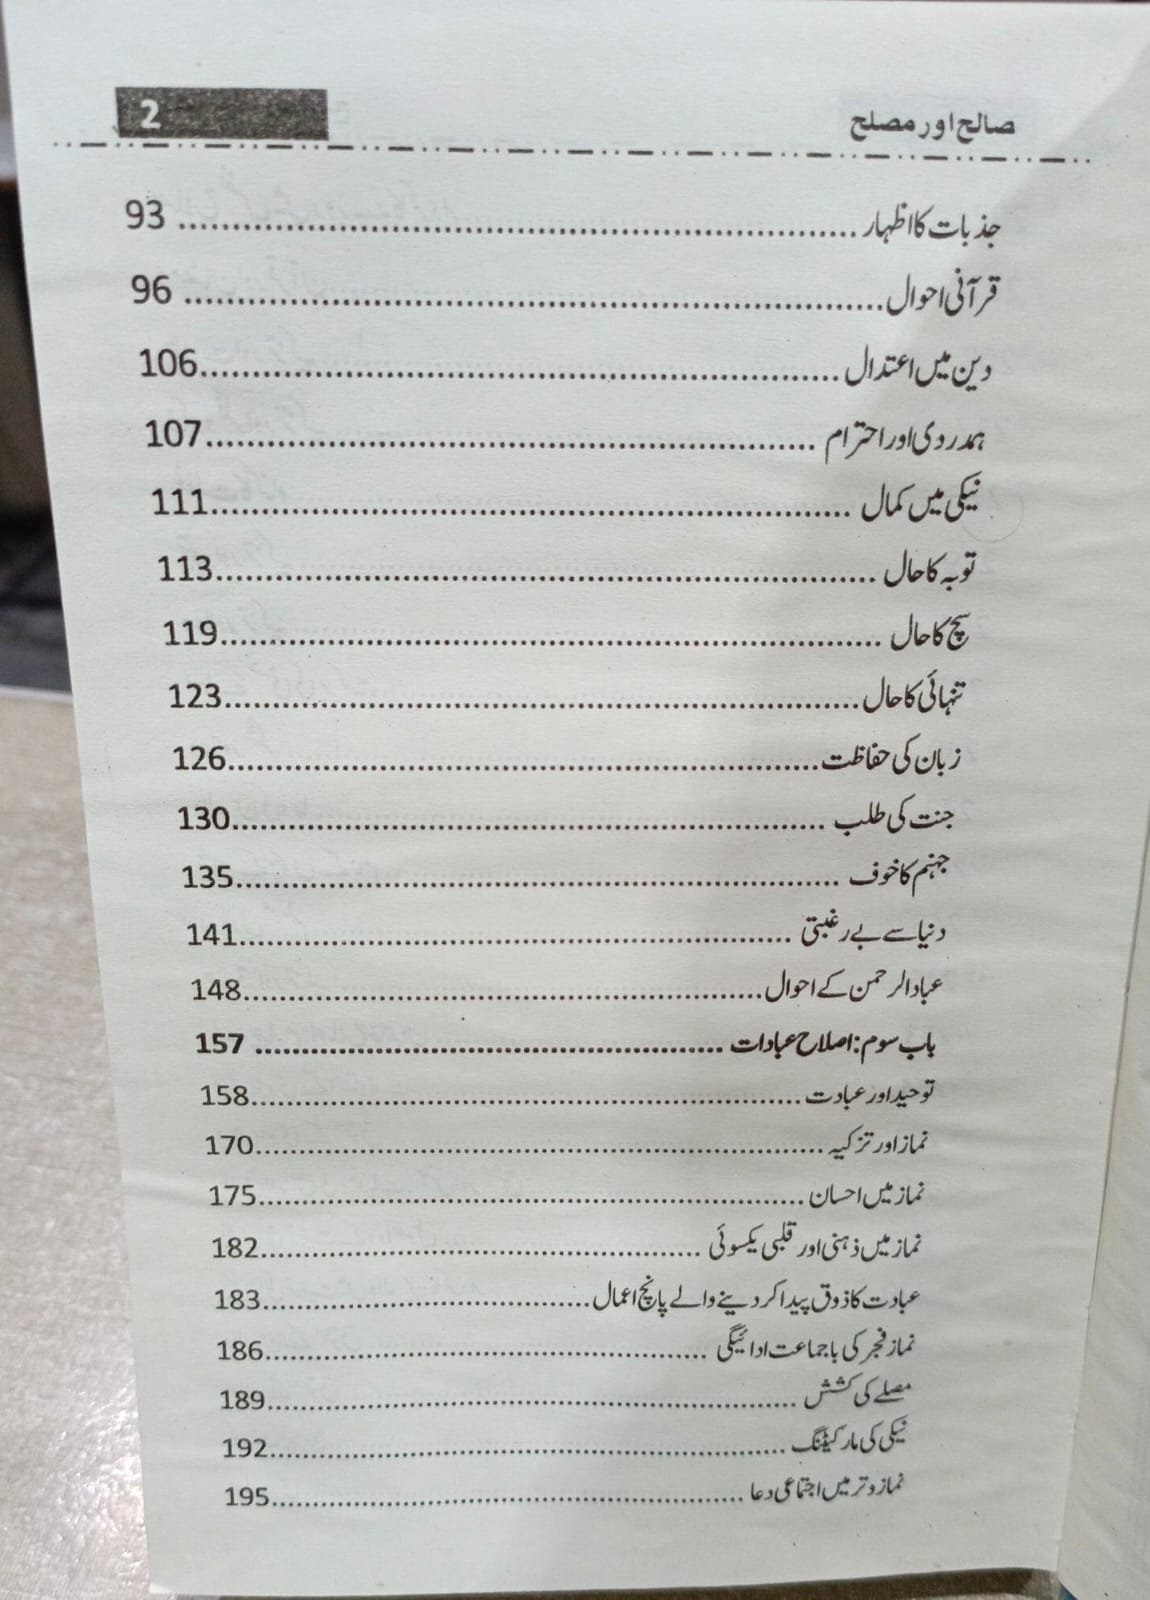 صالح اور مصلح 2
جذبات کا اظہار ........ 93
قرآنی احوال ........ 96
دین میں اعتدال ........ 106
ہمدردی اور احترام ........ 107
نیکی میں کمال ........ 111
توبہ کا حال ........ 113
سچ کا حال ........ 119
تنہائی کا حال ........ 123
زبان کی حفاظت ........ 126
جنت کی طلب ........ 130
جہنم کا خوف ........ 135
دنیا سے بے رغبتی ........ 141
عباد الرحمن کے احوال ........ 148
باب سوم: اصلاح عبادات ........ 157
توحید اور عبادت ........ 158
نماز اور تزکیہ ........ 170
نماز میں احسان ........ 175
نماز میں ذہنی اور قلبی یکسوئی ........ 182
عبادت کا ذوق پیدا کر دینے والے پانچ اعمال ........ 183
نماز فجر کی باجماعت ادائیگی ........ 186
مصلے کی کشش ........ 189
نیکی کی مارکیٹنگ ........ 192
نماز وتر میں اجتماعی دعا ........ 195